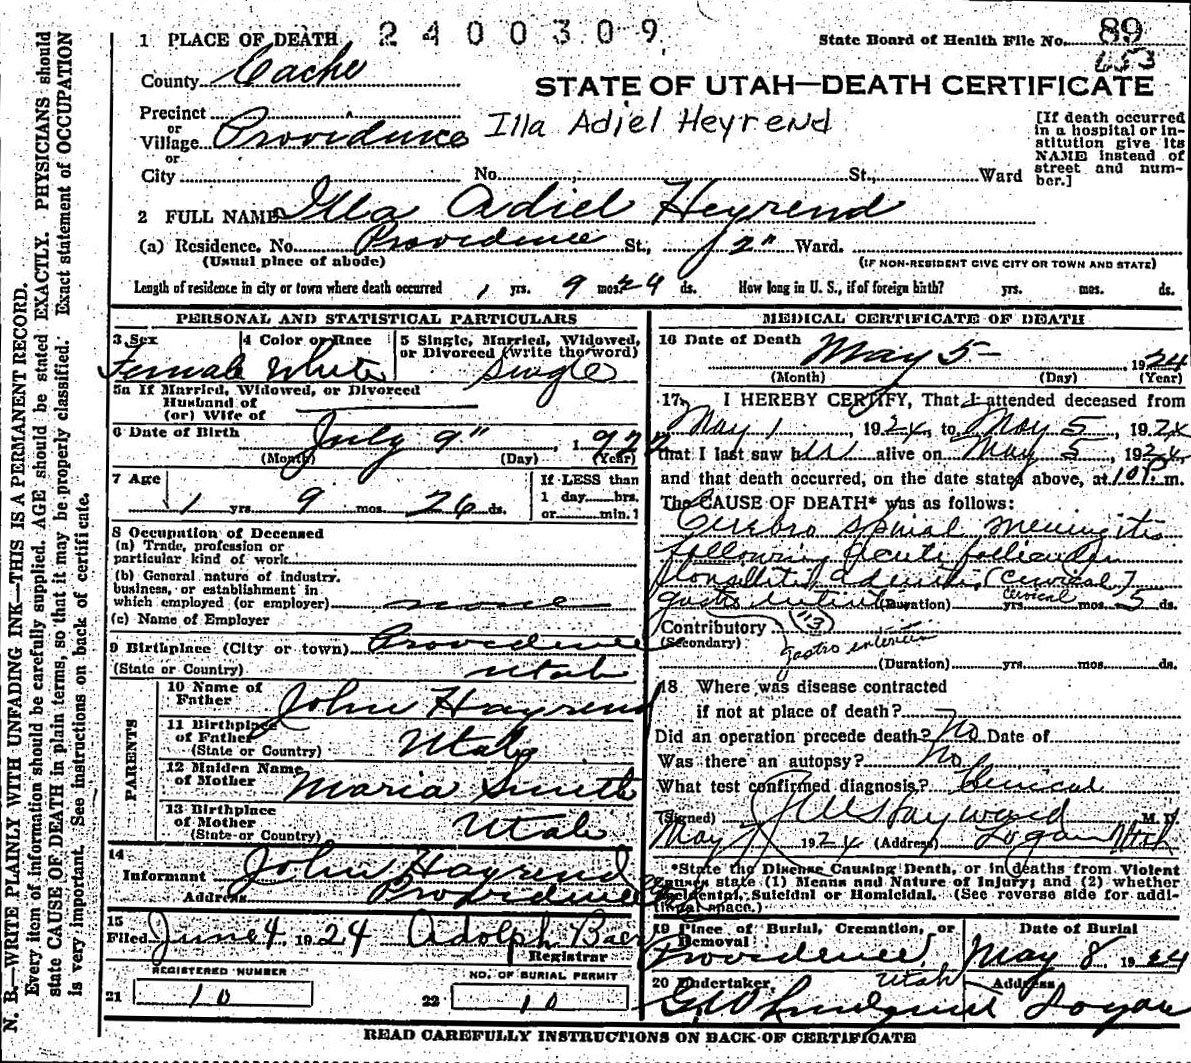 1 PLACE OF DEATH 2400309 State Board of Health File No. 89
653
County Cache
STATE OF UTAH—DEATH CERTIFICATE
Precinct
or
Village Providence Illa Adiel Heyrend
or
City No. St., Ward
[If death occurred in a hospital or institution give its NAME instead of street and number.]
2 FULL NAME Illa Adiel Heyrend
(a) Residence. No. Providence St., Ward.
(Usual place of abode) (IF NON-RESIDENT GIVE CITY OR TOWN AND STATE)
Length of residence in city or town where death occurred 1 yrs. 9 mos. ds. How long in U. S., if of foreign birth? yrs. mos. ds.
PERSONAL AND STATISTICAL PARTICULARS
3 Sex 4 Color or Race 5 Single, Married, Widowed, or Divorced (write the word)
Female White Single
5a If Married, Widowed, or Divorced
Husband of
(or) Wife of
6 Date of Birth July 9" 1922
(Month) (Day) (Year)
7 Age 1 yrs. 9 mos. 26 ds.
If LESS than
1 day hrs.
or min.
8 Occupation of Deceased
(a) Trade, profession or
particular kind of work
(b) General nature of industry,
business, or establishment in
which employed (or employer) none
(c) Name of Employer
9 Birthplace (City or town) Providence
(State or Country) Utah
PARENTS
10 Name of Father John Hayrend
11 Birthplace of Father
(State or Country) Utah
12 Maiden Name of Mother Maria Smith
13 Birthplace of Mother
(State or Country) Utah
14
Informant John Hayrend
Address Providence
15
Filed June 4 1924 Adolph Baer
Registrar
REGISTERED NUMBER NO. OF BURIAL PERMIT
21 10 22 10
MEDICAL CERTIFICATE OF DEATH
16 Date of Death May 5 - 1924
(Month) (Day) (Year)
17. I HEREBY CERTIFY, That I attended deceased from
May 1, 1924, to May 5, 1924
that I last saw her alive on May 5, 1924,
and that death occurred, on the date stated above, at 10 P. m.
The CAUSE OF DEATH* was as follows:
Cerebro spinal meningitis
following acute follicular
tonsillitis, adenitis, (cervical)
gastro (Duration) yrs. cervical mos. 5 ds.
Contributory 113
(Secondary) gastro
(Duration) yrs. mos. ds.
18 Where was disease contracted
if not at place of death?
Did an operation precede death? No Date of
Was there an autopsy? No
What test confirmed diagnosis? Clinical
(Signed) Hayward M. D.
May 1924 (Address) Logan Utah
*State the Disease Causing Death, or in deaths from Violent
Causes state (1) Means and Nature of Injury; and (2) whether
Accidental, Suicidal or Homicidal. (See reverse side for additional space.)
19 Place of Burial, Cremation, or Removal Date of Burial
Providence Utah May 8 1924
20 Undertaker, Address
Lindquist Logan
READ CAREFULLY INSTRUCTIONS ON BACK OF CERTIFICATE
N. B.—WRITE PLAINLY WITH UNFADING INK—THIS IS A PERMANENT RECORD.
Every item of information should be carefully supplied. AGE should be stated EXACTLY. PHYSICIANS should
state CAUSE OF DEATH in plain terms, so that it may be properly classified. Exact statement of OCCUPATION
is very important. See instructions on back of certificate.